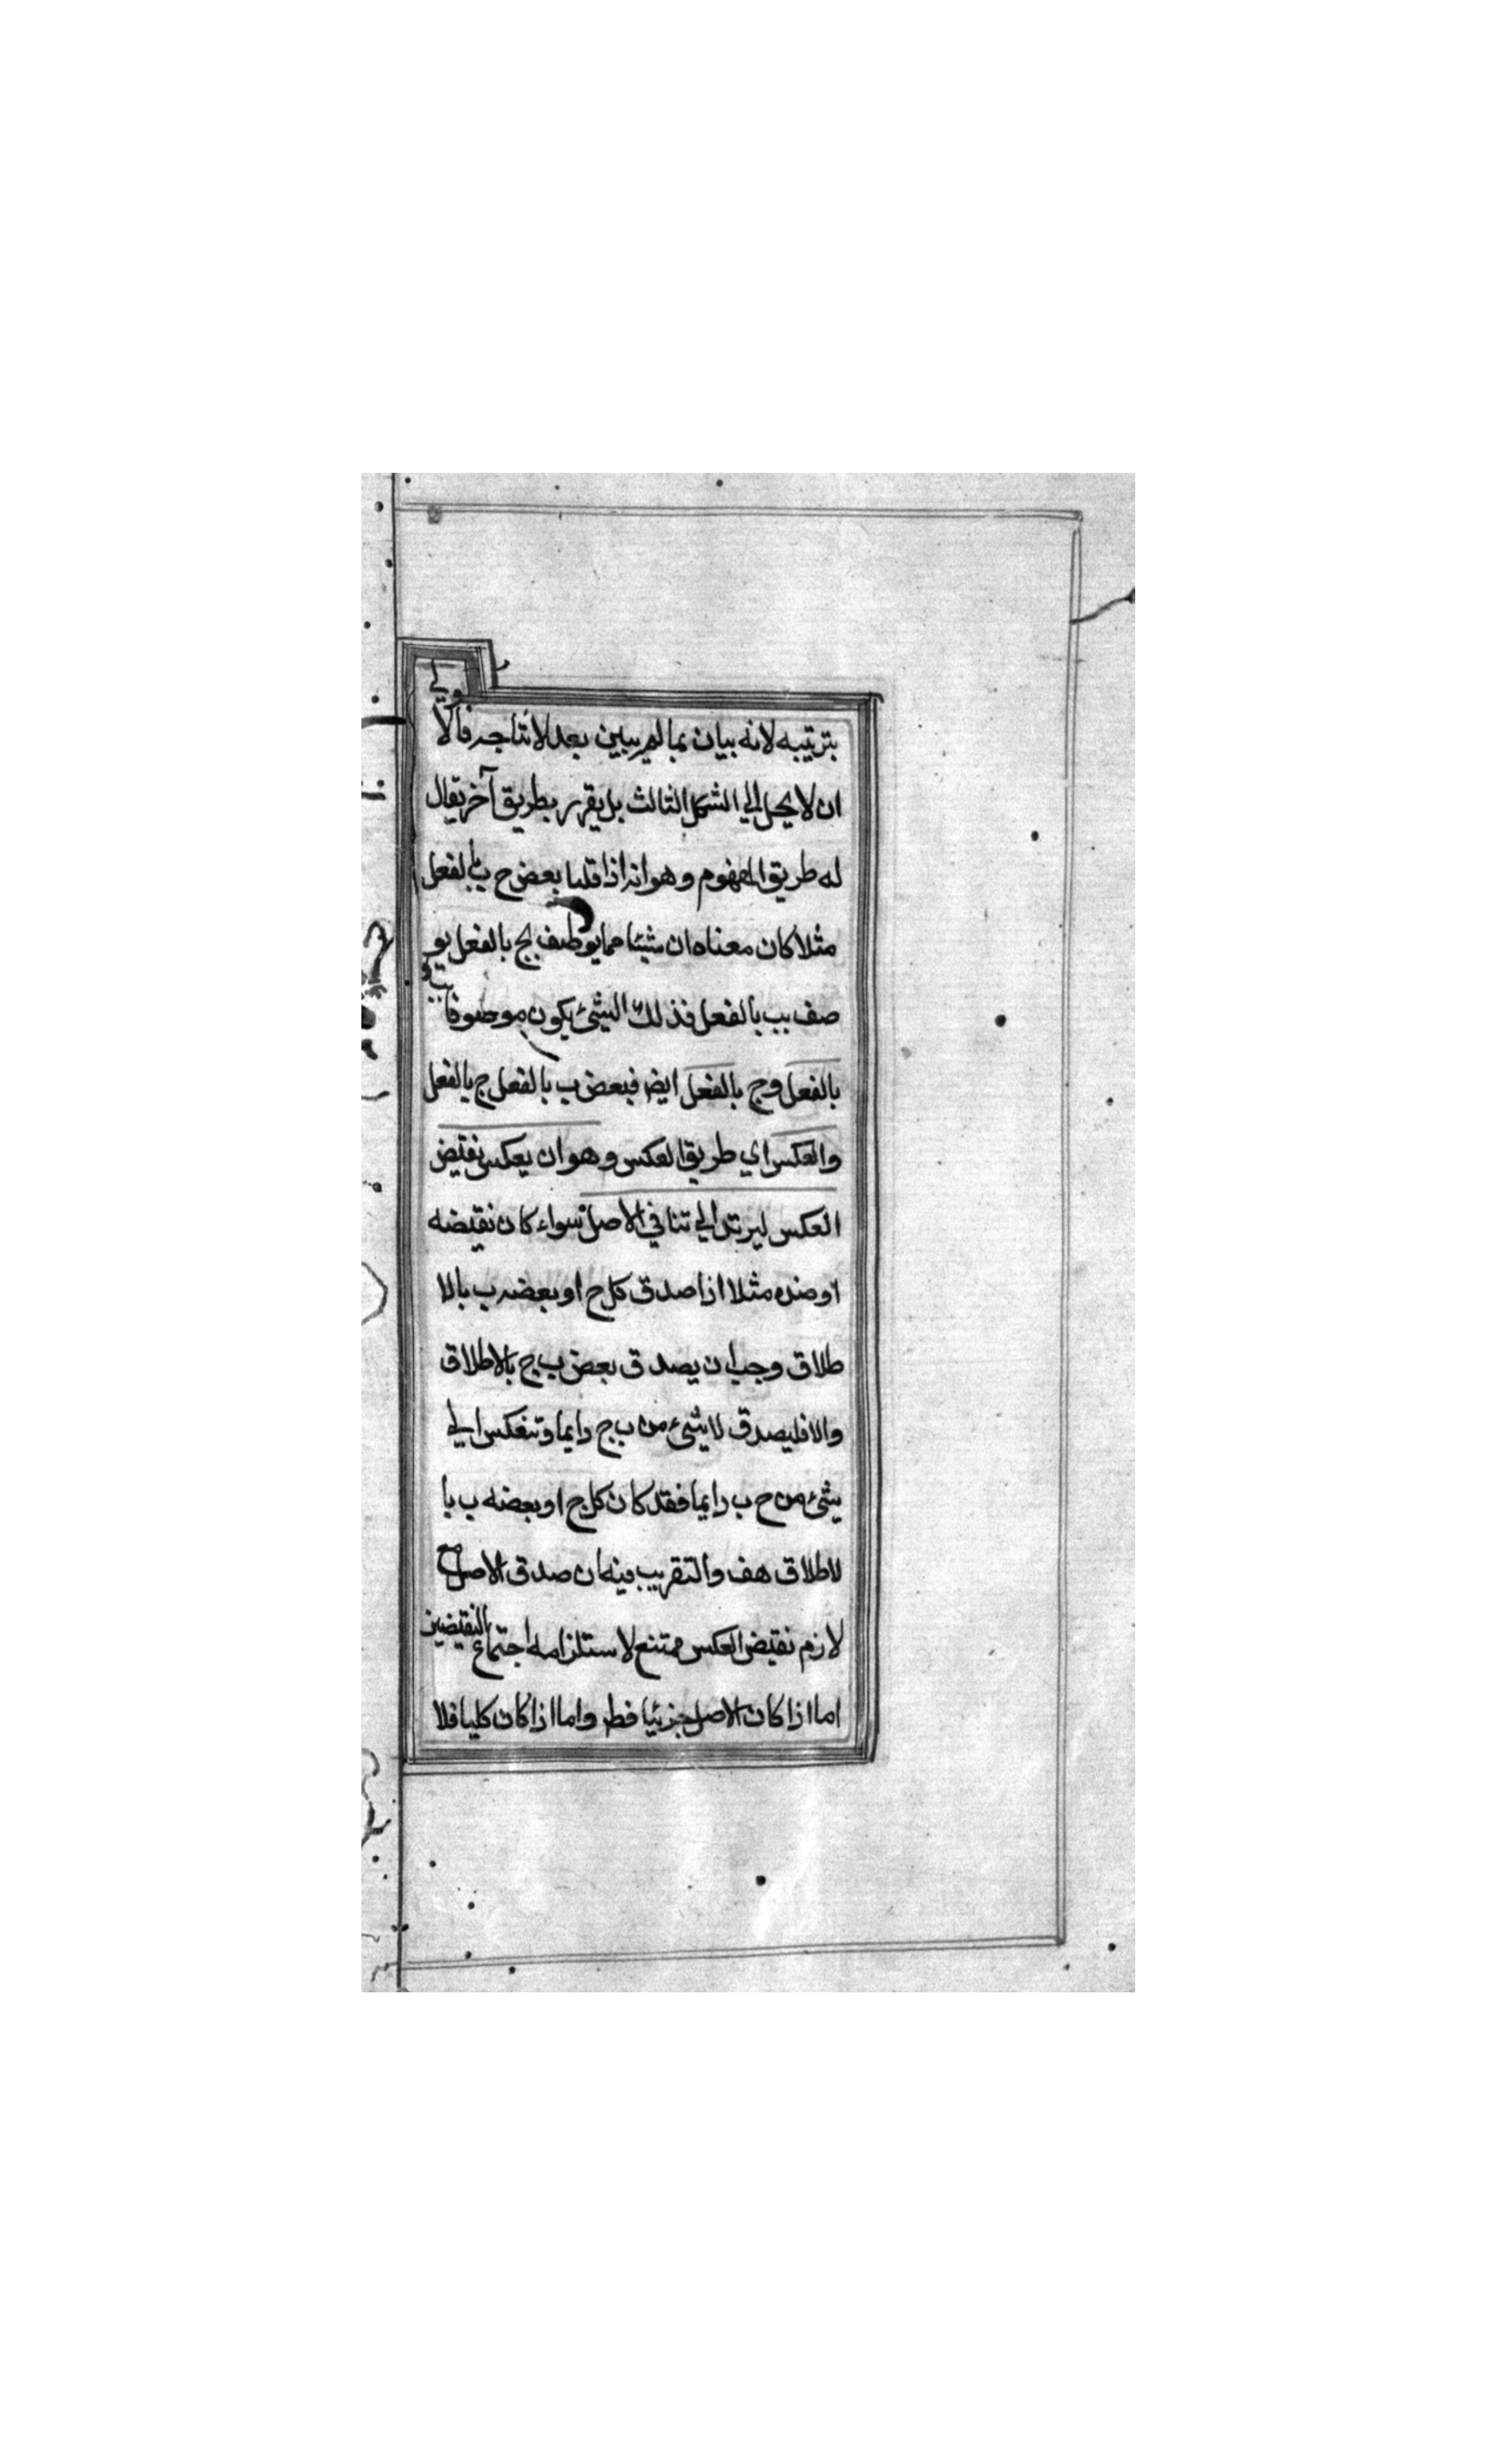 بترتيبه لانه بيان بما لم يبين بعد لانتاجه فالاولي
ان لا يحل الي الشكل الثالث بل يقرر بطريق آخر يقال
له طريق المفهوم وهو انه اذا قلنا بعض ج ب بالفعل
مثلا كان معناه ان شيئا مما يوصف بج بالفعل يو
صف بب بالفعل فذلك الشئ يكون موصوفا ببب
بالفعل وج بالفعل ايض فبعض ب بالفعل ج بالفعل
والعكس اي طريق العكس وهو ان يعكس نقيض
العكس ليرتد الي تنافي الاصل سواء كان نقيضه
او ضده مثلا اذا صدق كل ج او بعضه ب بالا
طلاق وجب ان يصدق بعض ب ج بالاطلاق
والا فليصدق لا شئ من ب ج دايما وتنعكس الي
شئ من ج ب دايما فقد كان كل ج او بعضه ب با
لاطلاق هف والتقريب فيه ان صدق الاصل مع
لازم نقيض العكس ممتنع لاستلزامه اجتماع النقيضين
اما اذا كان الاصل جزئيا فظ واما اذا كان كليا فلا